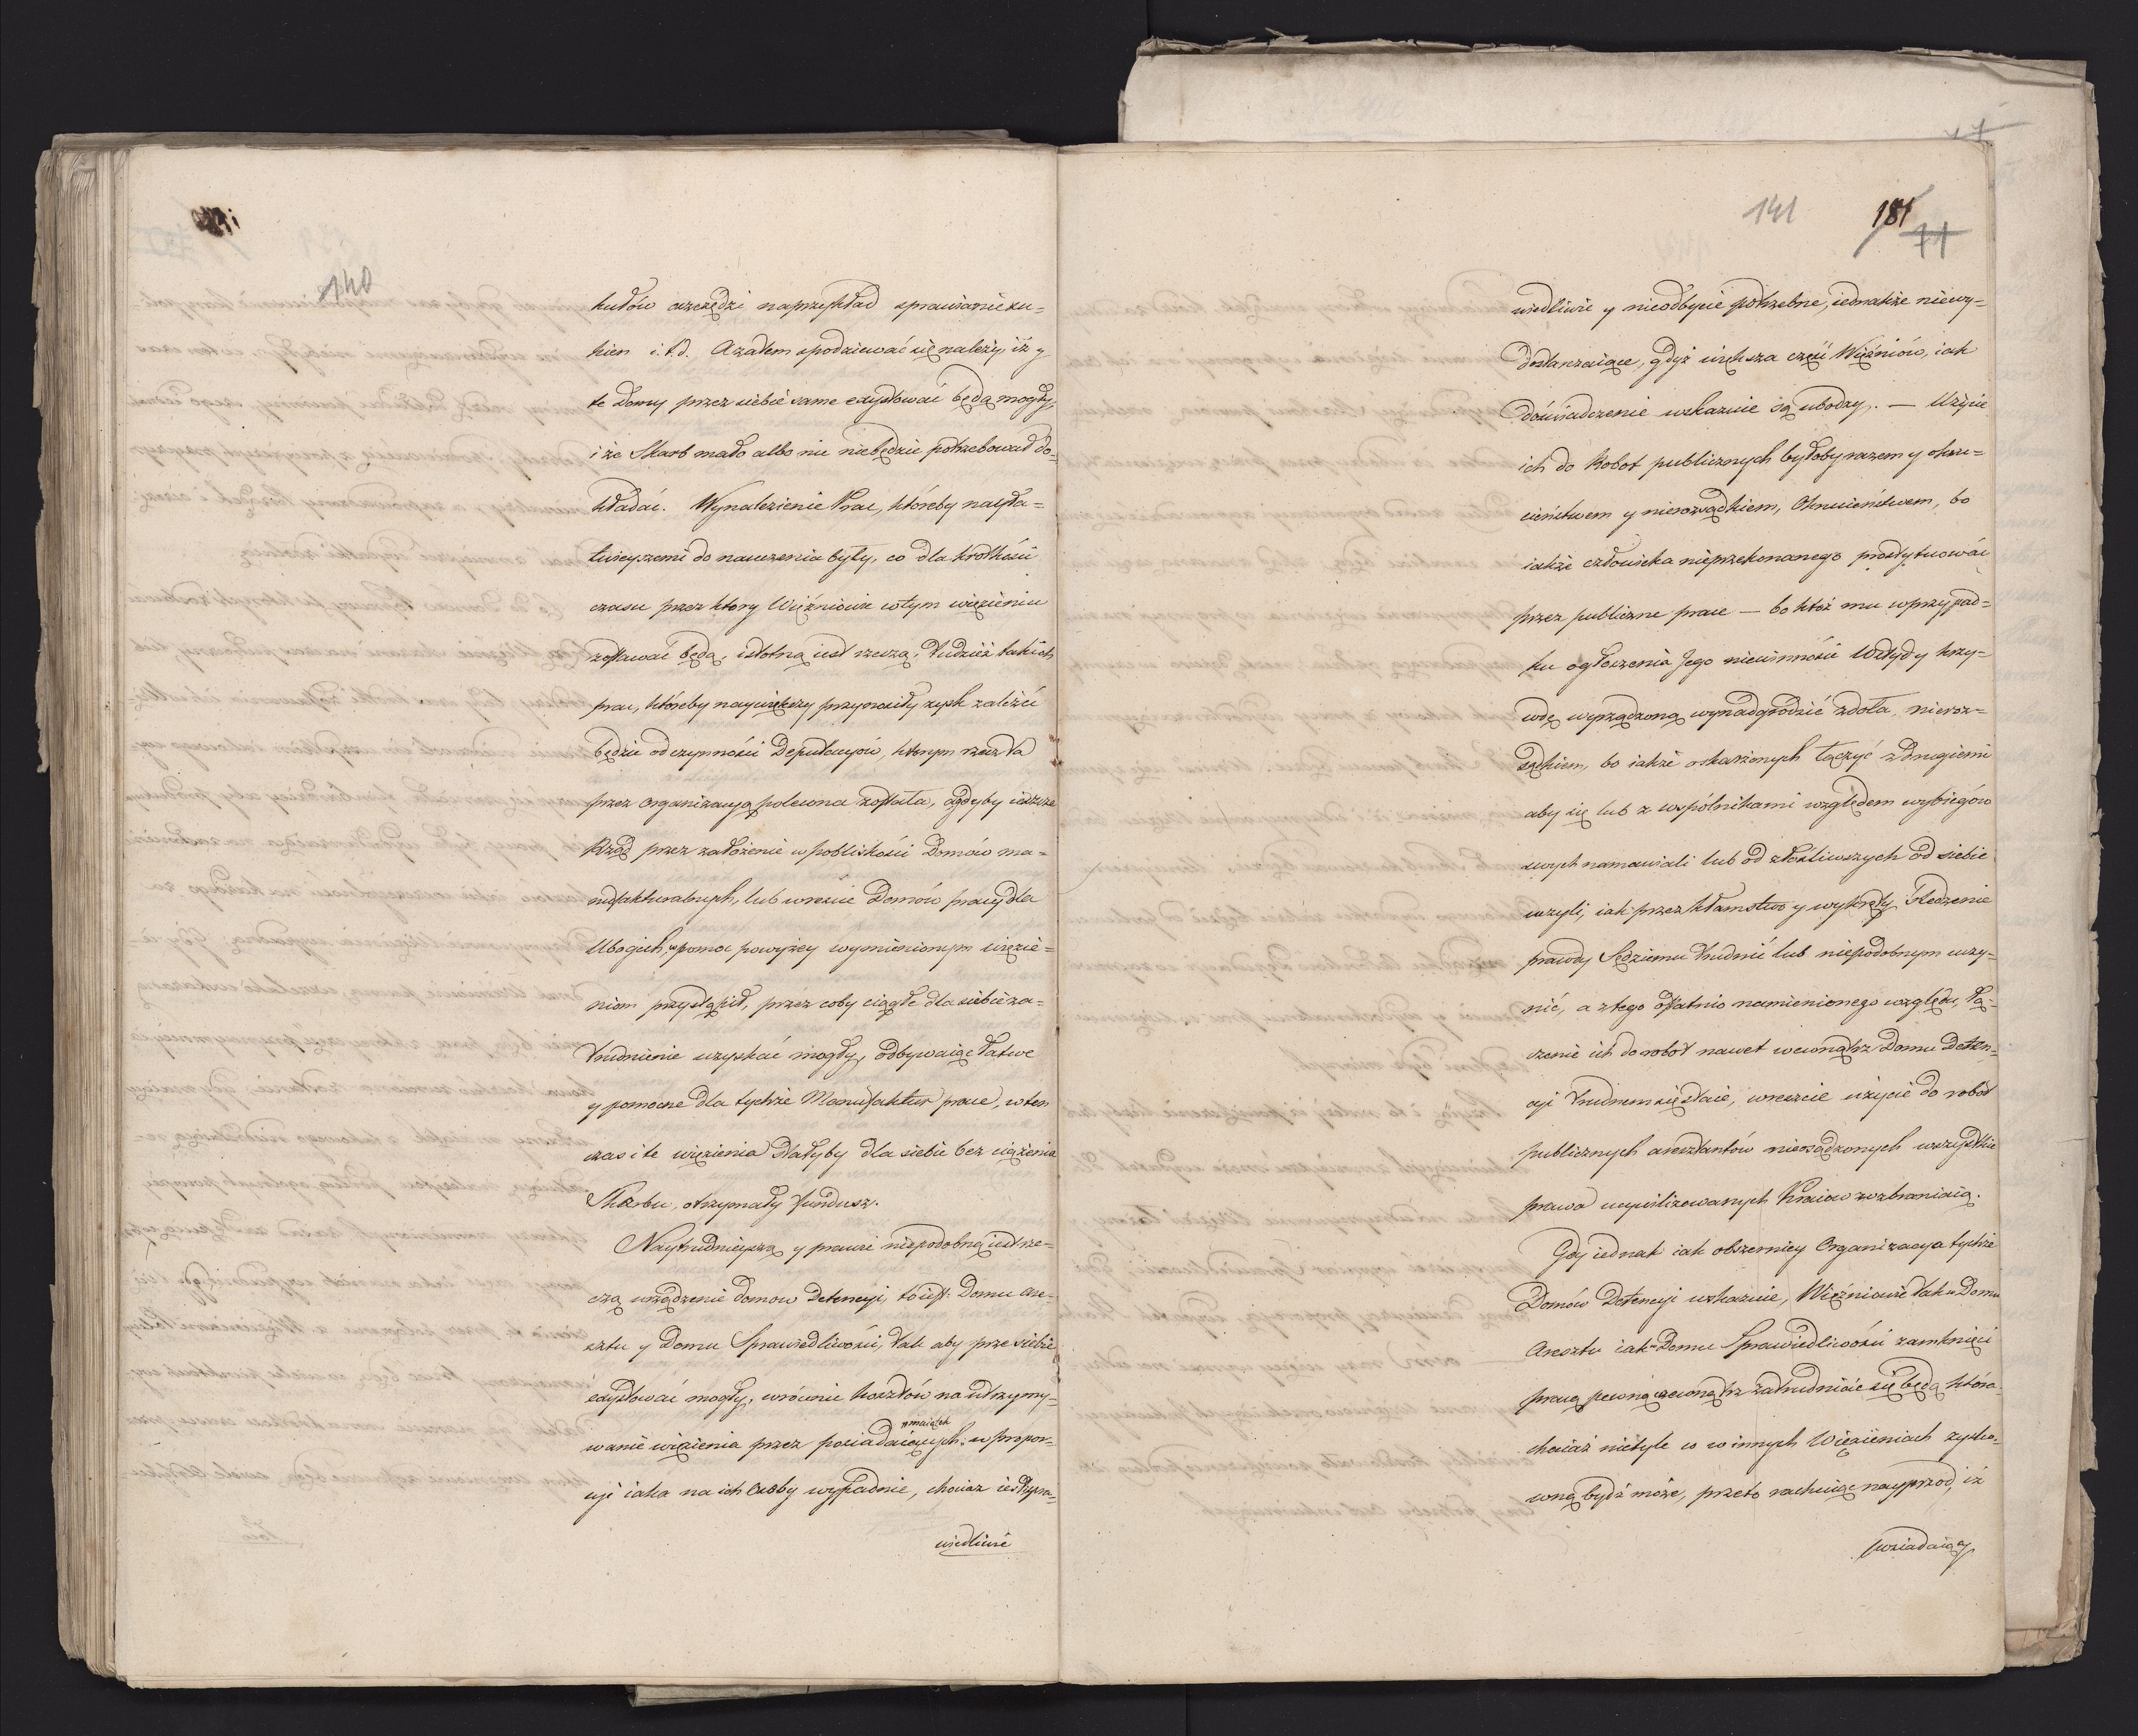 140
kułów oszczędzi naprzykład sprawianie su=
kien i.t.d. Azatem spodziewać się należy, iż y
te Domy przez siebie same exystować będą mogły,
i że Skarb mało albo nic niebędzie potrzebował do=
kładać. Wynalezienie Prac, któreby nayła=
twieyszemi do nauczenia były, co dla krótkości
czasu przez ktory Więźniowie wtym więzieniu
zostawać będą, istotną iest rzeczą, tudzież takich
prac, któreby naywiększy przynosiły zysk zależeć
będzie od czynności Deputacyów, którym rzecz ta
przez Organizacyą polecona została, agdyby ieszcze
Rząd przez założenie w pobliskości Domów ma=
nufakturalnych, lub wreście Domów pracy dla
Ubogich, w pomoc powyżey wymienionym więzie=
niom przystąpił, przez coby ciągłe dla siebie za=
trudnienie uzyskać mogły, odbywaiąc łatwe
y pomocne dla tychże Manufaktur prace, w ten
czas i te więzienia stałyby dla siebie bez ciążenia
Skarbu, otrzymały fundusz.
Naytrudnieyszą y prawie niepodobną iest rze=
czą urządzenie domow Detencyi, to iest: Domu Are=
sztu y Domu Sprawiedliwości, tak aby prze siebie
exystować mogły, wrócenie kosztów na utrzymy=
wanie więzienia przez posiadaiących maiątek w propor=
cyi iaka na ich Osoby wypadnie, chociaz iest spra=
wiedliwe
141 181 71
wiedliwie y nieodbycie potrzebne, iednakże niewy=
dostarczaiące, gdyż większa część Więźniów, iak
doświadczenie wskazuie są ubodzy. — Użycie
ich do Robot publicznych byłoby razem y okru=
cieństwem y nierozsądkiem, Okrucieństwem, bo
iakże człowieka nieprzekonanego prostytuować
przez publiczne prace — bo któż mu w przypad=
ku ogłoszenia Jego niewinności Wstyd y krzy=
wdę wyrządzoną wynadgrodzić zdoła, nieroz=
sądkiem, bo iakże oskarżonych łączyć z drugiemi
aby się lub z wspólnikami względem wybiegów
swych namawiali lub od złośliwszych od siebie
uczyli, iak przez kłamstwo y wykręty śledzenie
prawdy Sędziemu trudnić lub niepodobnym uczy=
nić, a z tego ostatnio namienionego względu, łą=
czenie ich do robot nawet wewnątrz Domu Deten=
cyi trudnem się staie, wreszcie użycie do robot
publicznych aresztantów nieosądzonych wszystkie
prawa ucywilizowanych Kraiow wzbraniaią.
Gdy iednak iak obszerniey Organizacya tychże
Domów Detencyi wskazuie, Więźniowie tak w Domu
Aresztu iak w Domu Sprawiedliwości zamknięci
pracą pewną wewnątrz zatrudniać się będą która
chociaż nietyle co w innych Więzieniach zysko=
wną bydź może, przeto rachuiąc nayprzod, iż
posiadaiący